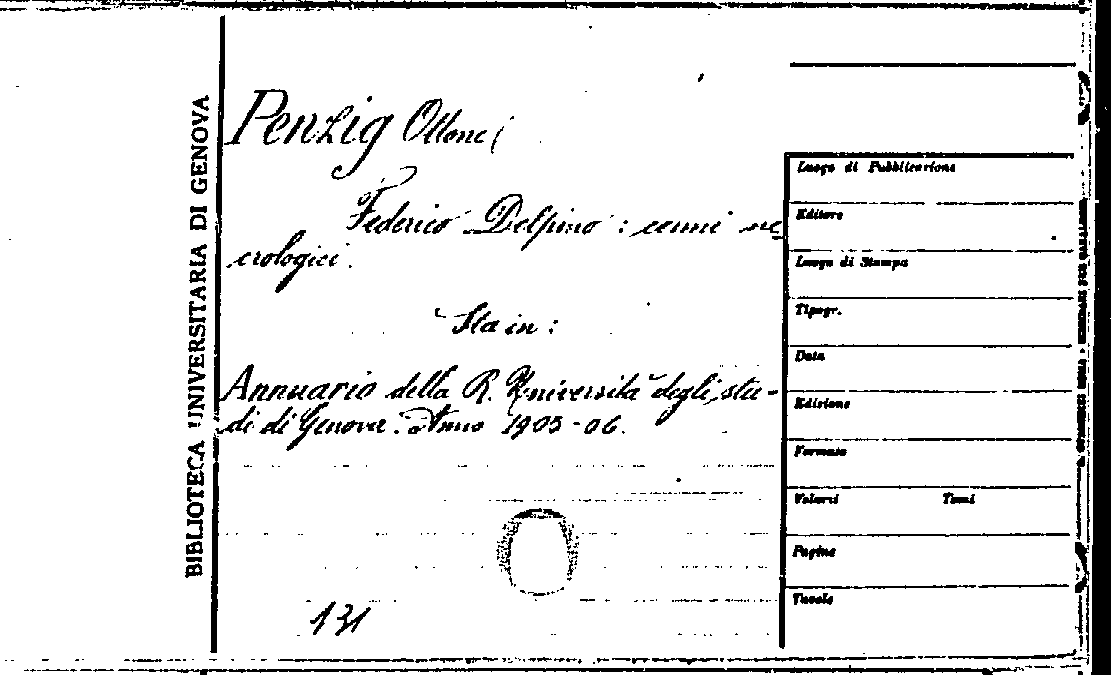 BIBLIOTECA UNIVERSITARIA DI GENOVA
Penzig Ottone (
Federico Delpino : cenni ne
crologici.
Sta in :
Annuario della R. Università degli stu-
di di Genova. Anno 1905-06.
131
Luogo di Pubblicazione
Editore
Luogo di Stampa
Tipogr.
Data
Edizione
Formato
Volumi Tomi
Pagine
Tavole